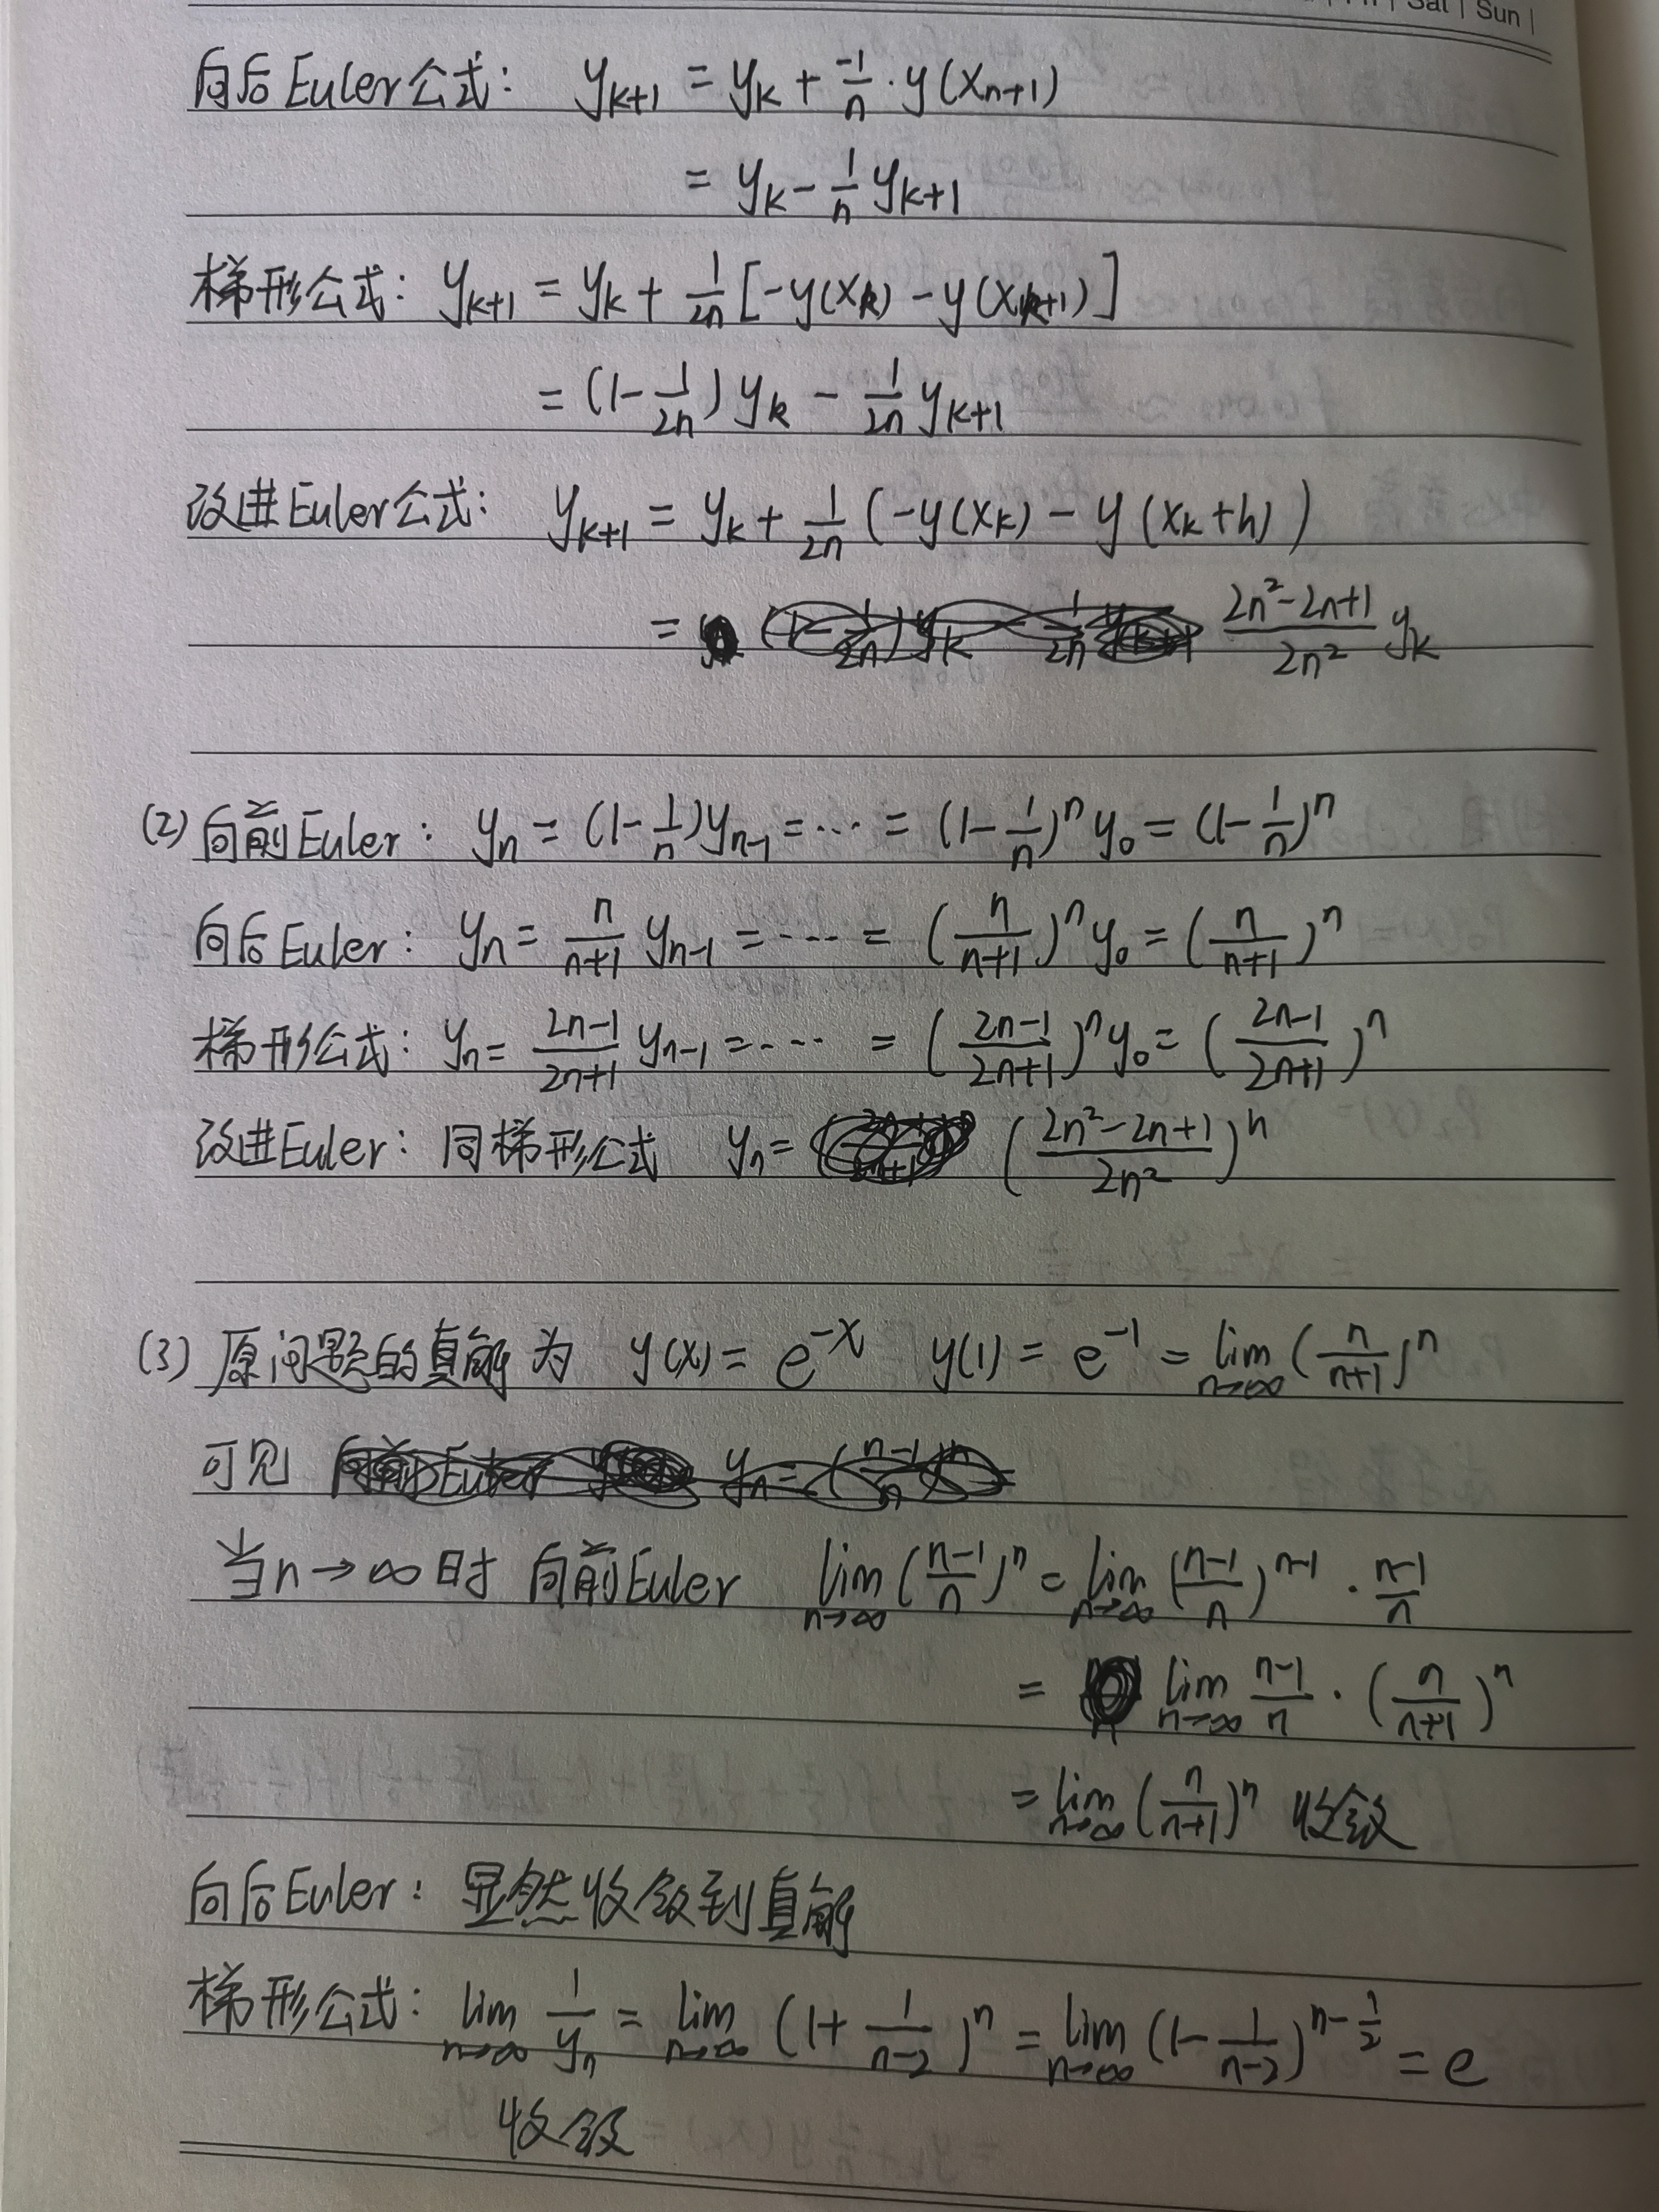 Sat | Sun |
向后Euler公式: y_{k+1} = y_k + \frac{-1}{n} · y(x_{n+1})
= y_k - \frac{1}{n} y_{k+1}
梯形公式: y_{k+1} = y_k + \frac{1}{2n} [-y(x_k) - y(x_{k+1})]
= (1 - \frac{1}{2n}) y_k - \frac{1}{2n} y_{k+1}
改进Euler公式: y_{k+1} = y_k + \frac{1}{2n} (-y(x_k) - y(x_k+h))
= \frac{2n^2-2n+1}{2n^2} y_k
(2) 向前Euler: y_n = (1-\frac{1}{n}) y_{n-1} = ··· = (1-\frac{1}{n})^n y_0 = (1-\frac{1}{n})^n
向后Euler: y_n = \frac{n}{n+1} y_{n-1} = ···· = (\frac{n}{n+1})^n y_0 = (\frac{n}{n+1})^n
梯形公式: y_n = \frac{2n-1}{2n+1} y_{n-1} = ···· = (\frac{2n-1}{2n+1})^n y_0 = (\frac{2n-1}{2n+1})^n
改进Euler: 同梯形公式 y_n = (\frac{2n^2-2n+1}{2n^2})^n
(3) 原问题的真解为 y(x) = e^{-x} y(1) = e^{-1} = \lim_{n→∞} (\frac{n}{n+1})^n
可见
当n→∞时 向前Euler \lim_{n→∞} (\frac{n-1}{n})^n = \lim_{n→∞} (\frac{n-1}{n})^{n-1} · \frac{n-1}{n}
= \lim_{n→∞} \frac{n-1}{n} · (\frac{n}{n+1})^n
= \lim_{n→∞} (\frac{n}{n+1})^n 收敛
向后Euler: 显然收敛到真解
梯形公式: \lim_{n→∞} \frac{1}{y_n} = \lim_{n→∞} (1+\frac{1}{n-2})^n = \lim_{n→∞} (1-\frac{1}{n-2})^{n-\frac{1}{2}} = e
收敛